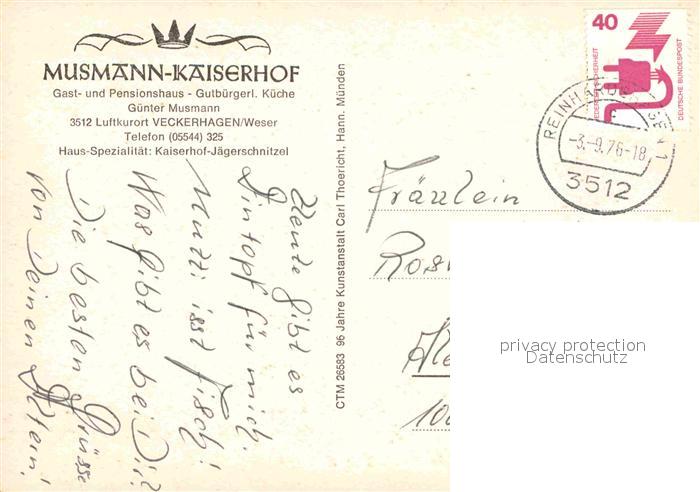 MUSMANN-KAISERHOF
Gast- und Pensionshaus - Gutbürgerl. Küche
Günter Musmann
3512 Luftkurort VECKERHAGEN/Weser
Telefon (05544) 325
Haus-Spezialität: Kaiserhof-Jägerschnitzel
Heute gibt es
Eintopf für mich.
Mutti isst Fisch!
Was gibt es bei Dir?
Die besten Grüsse
von Deinen Eltern!
CTM 26583 96 Jahre Kunstanstalt Carl Thoericht, Hann. Münden
40
JEDERZEIT SICHERHEIT
DEUTSCHE BUNDESPOST
REINHARDSHAGEN 1
-3.-9.76-18
3512
Fräulein
Ros
100
privacy protection
Datenschutz